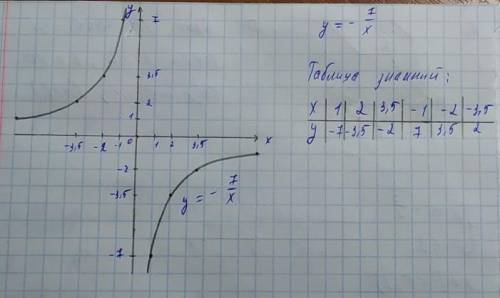 y = - 7/x
Таблица значений:
x | 1 | 2 | 3,5 | -1 | -2 | -3,5
y | -7 | -3,5 | -2 | 7 | 3,5 | 2
y
7
3,5
2
1
-3,5 -2 -1 0 1 2 3,5 x
-2
-3,5
-7
y = - 7/x